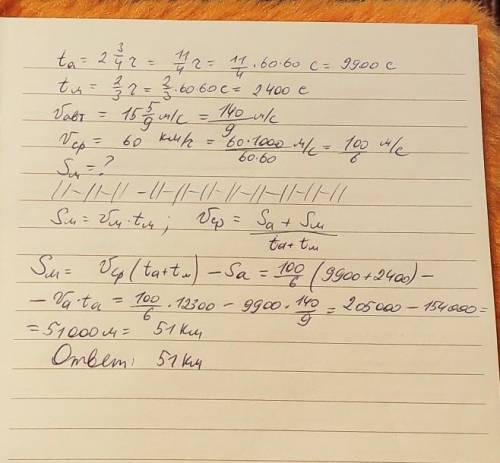 tа = 2 3/4 г = 11/4 г = 11/4 · 60·60 с = 9900 с
tм = 2/3 г = 2/3 · 60·60 с = 2400 с
Vавт = 15 5/9 м/с = 140/9 м/с
Vср = 60 км/г = 60·1000/60·60 м/с = 100/6 м/с
Sм = ?
Sм = Vм · tм ; Vср = Sа + Sм / tа + tм
Sм = Vср (tа + tм) – Sа = 100/6 (9900 + 2400) –
– Vа · tа = 100/6 · 12300 – 9900 · 140/9 = 205000 – 154000 =
= 51000 м = 51 км
Ответ: 51 км